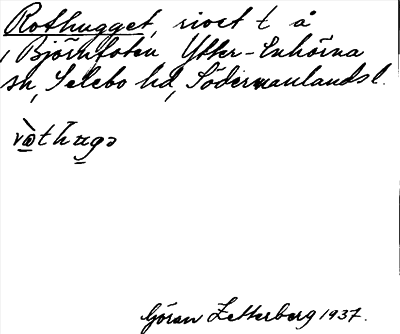 Rothugget,
å
i Björnfoten Ytter-Enhörna
sn, Selebo hd, Södermanlands l.
Göran Zetterberg 1937.